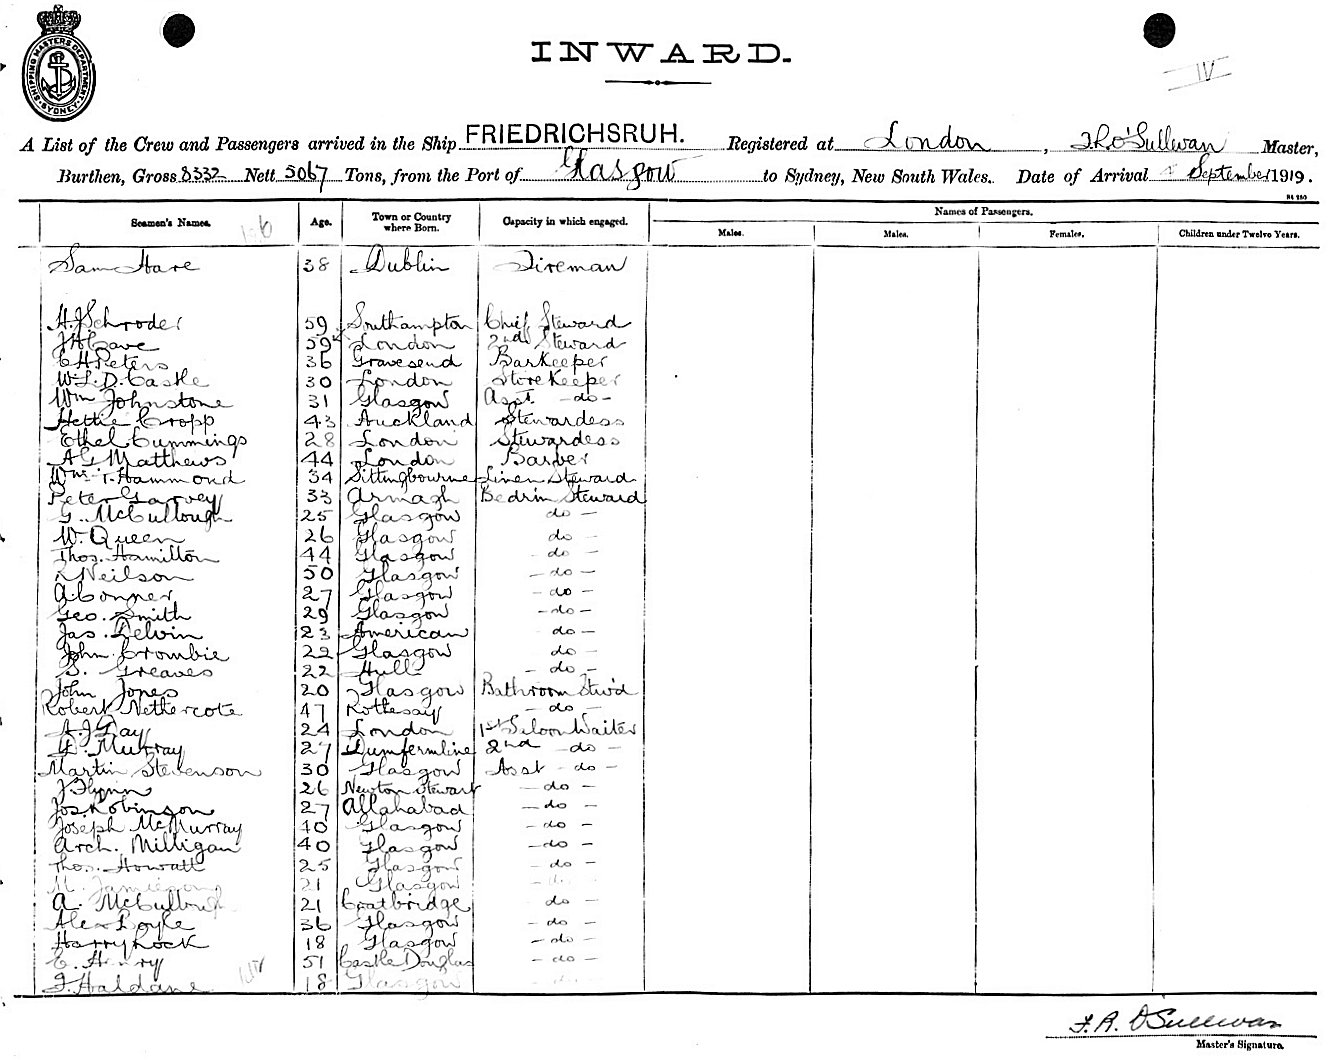 SHIPPING MASTERS DEPARTMENT SYDNEY
INWARD.
IV
A List of the Crew and Passengers arrived in the Ship FRIEDRICHSRUH. Registered at London, F.R. O'Sullivan Master,
Burthen, Gross 8332 Nett 5067 Tons, from the Port of Glasgow to Sydney, New South Wales. Date of Arrival September 1919.
Seamen's Names. Age. Town or Country where Born. Capacity in which engaged. Names of Passengers.
Males. Males. Females. Children under Twelve Years.
Sam Hare 38 Dublin Fireman
H.J. Schroder 59 Southampton Chief Steward
J H Cave 59 London 2nd Steward
C H Peters 36 Gravesend Barkeeper
W.L.D. Castle 30 London Storekeeper
Wm Johnstone 31 Glasgow Asst. -do-
Hettie Cropp 43 Auckland Stewardess
Ethel Cummings 28 London Stewardess
A G Matthews 44 London Barber
Wm. T. Hammond 34 Sittingbourne Linen Steward
Peter Garvey 33 Armagh Bedrm Steward
G. McCullough 25 Glasgow do -
W. Queen 26 Glasgow do -
Thos. Hamilton 44 Glasgow - do -
Neilson 50 Glasgow - do -
A. Conner 27 Glasgow - do -
Geo. Smith 29 Glasgow - do -
Jas. Delvin 23 American do -
John Crombie 22 Glasgow do -
S. Greaves 22 Hull - do -
John Jones 20 Glasgow Bathroom Stwd
Robert Nethercote 47 Rothesay - do -
A.J. Gay 24 London 1st Saloon Waiter
G. Murray 27 Dumfermline 2nd - do -
Martin Stevenson 30 Glasgow Asst - do -
J. Flynn 26 Newton Stewart - do -
Jos. Robinson 27 Allahabad - do -
Joseph McMurray 40 Glasgow - do -
Arch. Milligan 40 Glasgow - do -
Thos. Howatt 25 Glasgow - do -
M. Jamieson 21 Glasgow - do -
A. McCullough 21 Coatbridge do -
Alex Boyle 36 Glasgow - do -
Harry Lock 18 Glasgow - do -
E. Henry 51 Castle Douglas - do -
J. Haldane 18 Glasgow
F.R. O'Sullivan
Master's Signature.